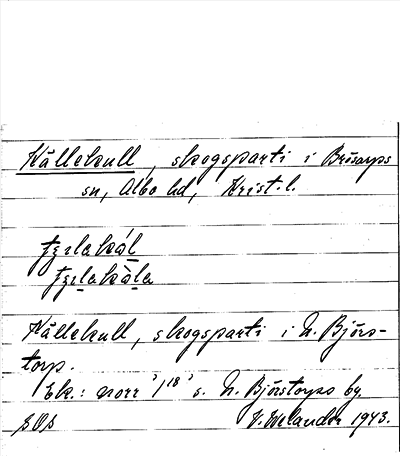 Källekull, skogsparti i Brösarps
sn, Albo hd, Krist. l.
Källekull, skogsparti i N. Björs-
torp.
Ek.: norr s. N. Björstorps by.
V. Welander 1943.